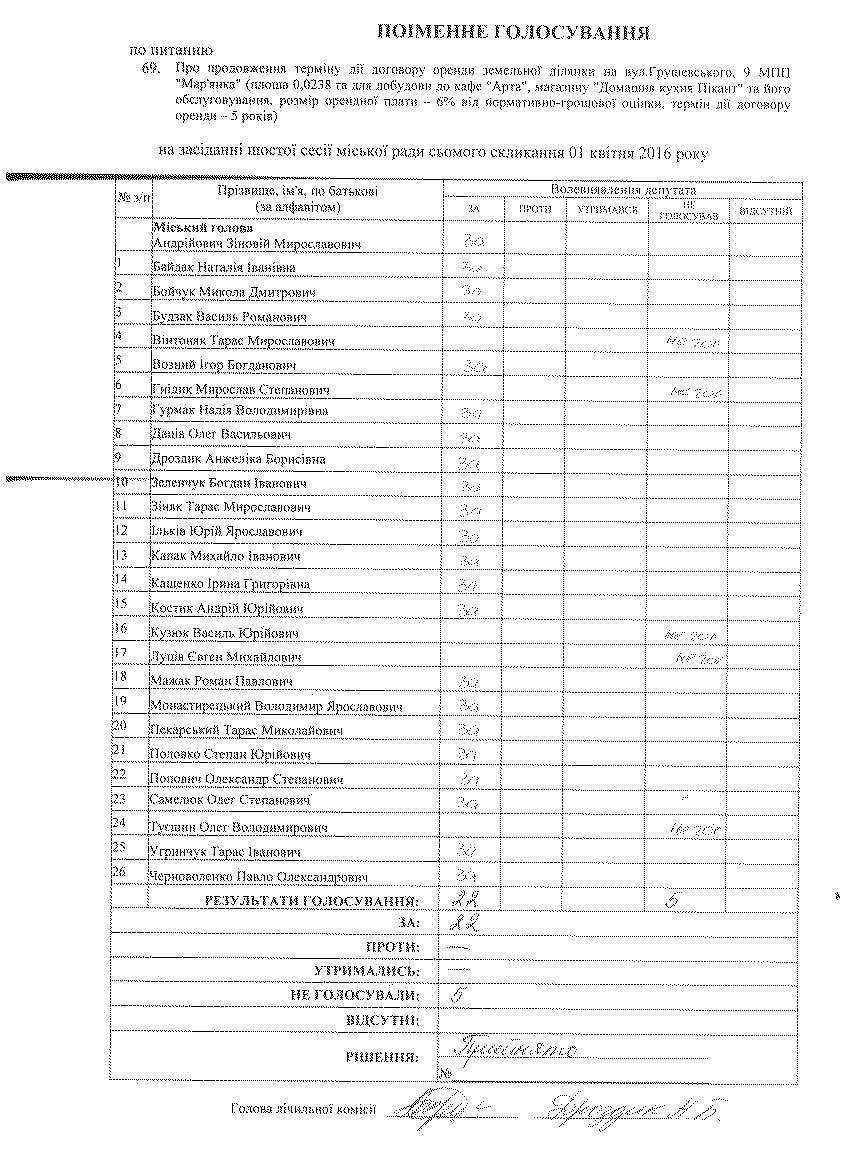 ПОІМЕННЕ ГОЛОСУВАННЯ
по питанню
69. Про продовження терміну дії договору оренди земельної ділянки на вул.Грушевського, 9 МПП
"Мар'янка" (площа 0,0238 га для добудови до кафе "Арта", магазину "Домашня кухня Пікант" та його
обслуговування, розмір орендної плати – 6% від нормативно-грошової оцінки, термін дії договору
оренди – 5 років)
на засіданні шостої сесії міської ради сьомого скликання 01 квітня 2016 року
№ з/п Прізвище, ім'я, по батькові Волевиявлення депутата
(за алфавітом) ЗА ПРОТИ УТРИМАВСЯ НЕ ГОЛОСУВАВ ВІДСУТНІЙ
Міський голова
Андрійович Зіновій Мирославович за
1 Байдак Наталія Іванівна за
2 Бойчук Микола Дмитрович за
3 Будзак Василь Романович за
4 Вінтоняк Тарас Мирославович не гол
5 Возний Ігор Богданович за
6 Гнідик Мирослав Степанович не гол
7 Гурмак Надія Володимирівна за
8 Даців Олег Васильович за
9 Дроздик Анжеліка Борисівна за
10 Зеленчук Богдан Іванович за
11 Зіняк Тарас Мирославович за
12 Ільків Юрій Ярославович за
13 Капак Михайло Іванович за
14 Кащенко Ірина Григорівна за
15 Костик Андрій Юрійович за
16 Кузюк Василь Юрійович не гол
17 Лупів Євген Михайлович не гол
18 Мажак Роман Павлович за
19 Монастирецький Володимир Ярославович за
20 Пекарський Тарас Миколайович за
21 Половко Степан Юрійович за
22 Попович Олександр Степанович за
23 Самелюк Олег Степанович за
24 Олег Володимирович не гол
25 Угринчук Тарас Іванович за
26 Черноволенко Павло Олександрович за
РЕЗУЛЬТАТИ ГОЛОСУВАННЯ: 22 5
ЗА: 22
ПРОТИ: —
УТРИМАЛИСЬ: —
НЕ ГОЛОСУВАЛИ: 5
ВІДСУТНІ:
РІШЕННЯ: Прийнято
№
Голова лічильної комісії Дроздик А. Б.